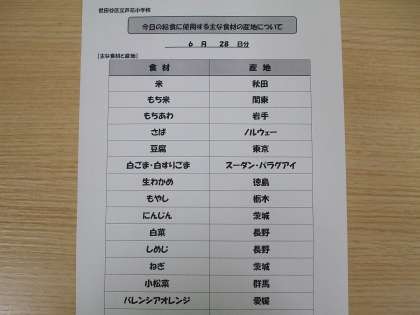 世田谷区立芦花小学校
今日の給食に使用する主な食材の産地について
6 月 28 日分
[主な食材と産地]
食 材 産 地
米 秋田
もち米 関東
もちあわ 岩手
さば ノルウェー
豆腐 東京
白ごま・白すりごま スーダン・パラグアイ
生わかめ 徳島
もやし 栃木
にんじん 茨城
白菜 長野
しめじ 長野
ねぎ 茨城
小松菜 群馬
バレンシアオレンジ 愛媛